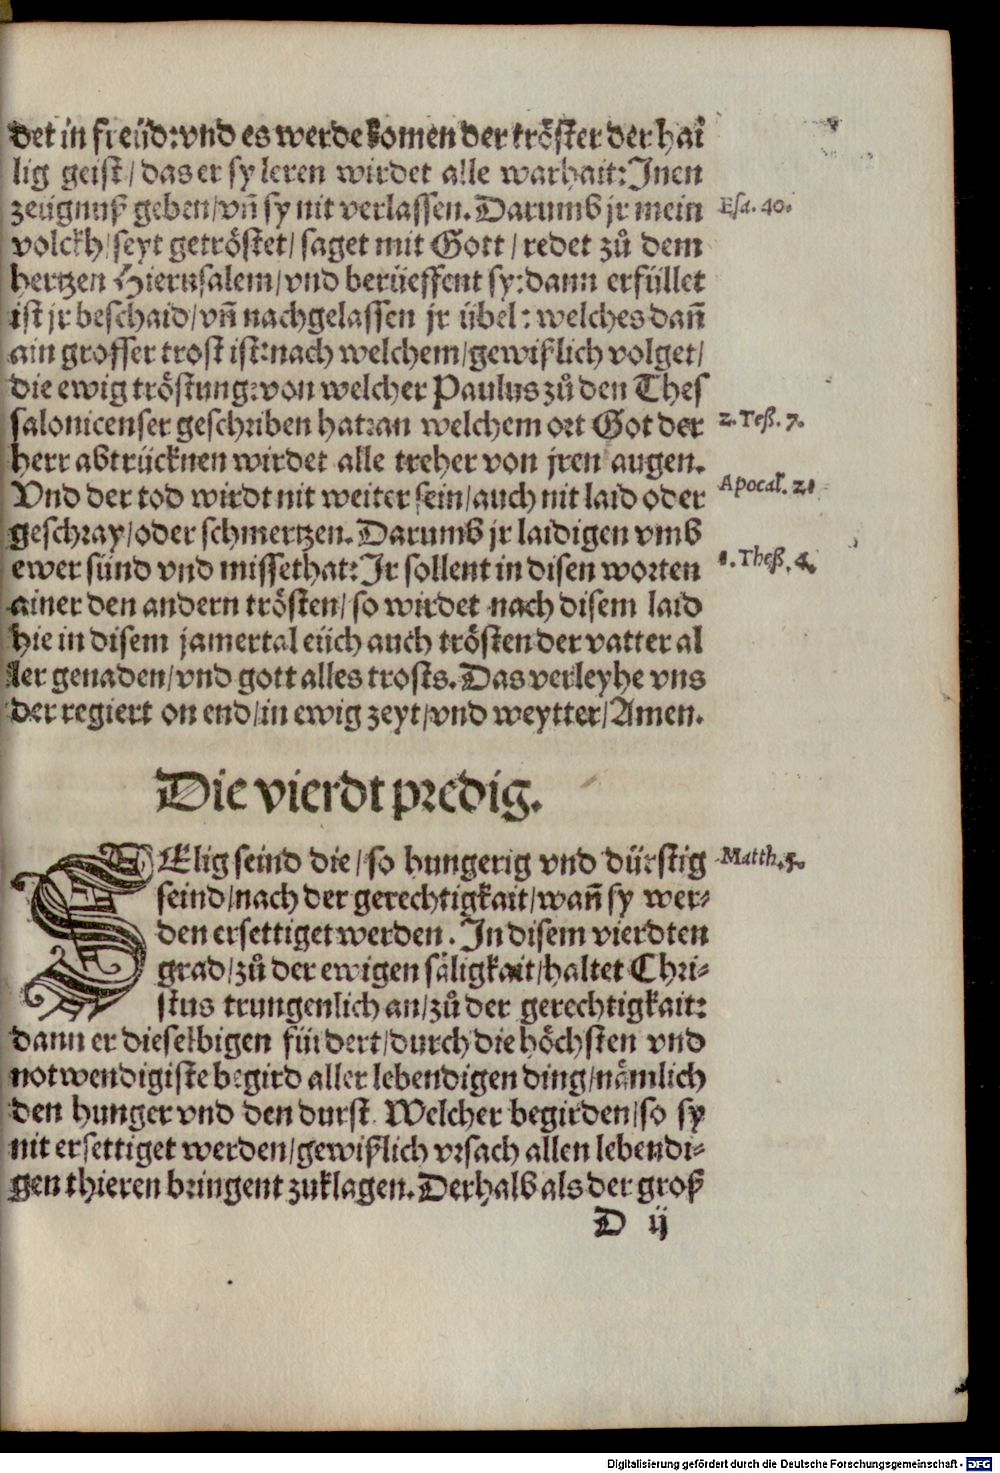 det in freüd: vnd es werde komen der tröster der hai
lig geist / das er sy leren wirdet alle warhait: Inen
zeügnuß geben / vñ sy nit verlassen. Darumb jr mein
Esa. 40.
volckh / seyt getröstet / saget mit Gott / redet zů dem
hertzen Hierusalem / vnd berüeffent sy: dann erfüllet
ist jr beschaid / vñ nachgelassen jr übel: welches dañ
ain grosser trost ist: nach welchem / gewißlich volget /
die ewig tröstung: von welcher Paulus zů den Thes
salonicenser geschriben hat: an welchem ort Got der
2. Teß. 7.
herr abtrücknen wirdet alle treher von jren augen.
Vnd der tod wirdt nit weiter sein / auch nit laid oder
Apocal. 21
geschray / oder schmertzen. Darumb jr laidigen vmb
ewer sünd vnd missethat: Ir sollent in disen worten
1. Theß. 4.
ainer den andern trösten / so wirdet nach disem laid
hie in disem jamertal eüch auch trösten der vatter al
ler genaden / vnd gott alles trosts. Das verleyhe vns
der regiert on end / in ewig zeyt / vnd weytter / Amen.
Die vierdt predig.
SElig seind die / so hungerig vnd dürstig
Matth. 5.
seind / nach der gerechtigkait / wañ sy wer-
den ersettiget werden. In disem vierdten
grad / zů der ewigen säligkait / haltet Chri-
stus trungenlich an / zů der gerechtigkait:
dann er dieselbigen fürdert / durch die höchsten vnd
notwendigiste begird aller lebendigen ding / nämlich
den hunger vnd den durst. Welcher begirden / so sy
nit ersettiget werden / gewißlich vrsach allen lebendi-
gen thieren bringent zuklagen. Derhalb als der groß
D ij
Digitalisierung gefördert durch die Deutsche Forschungsgemeinschaft - DFG